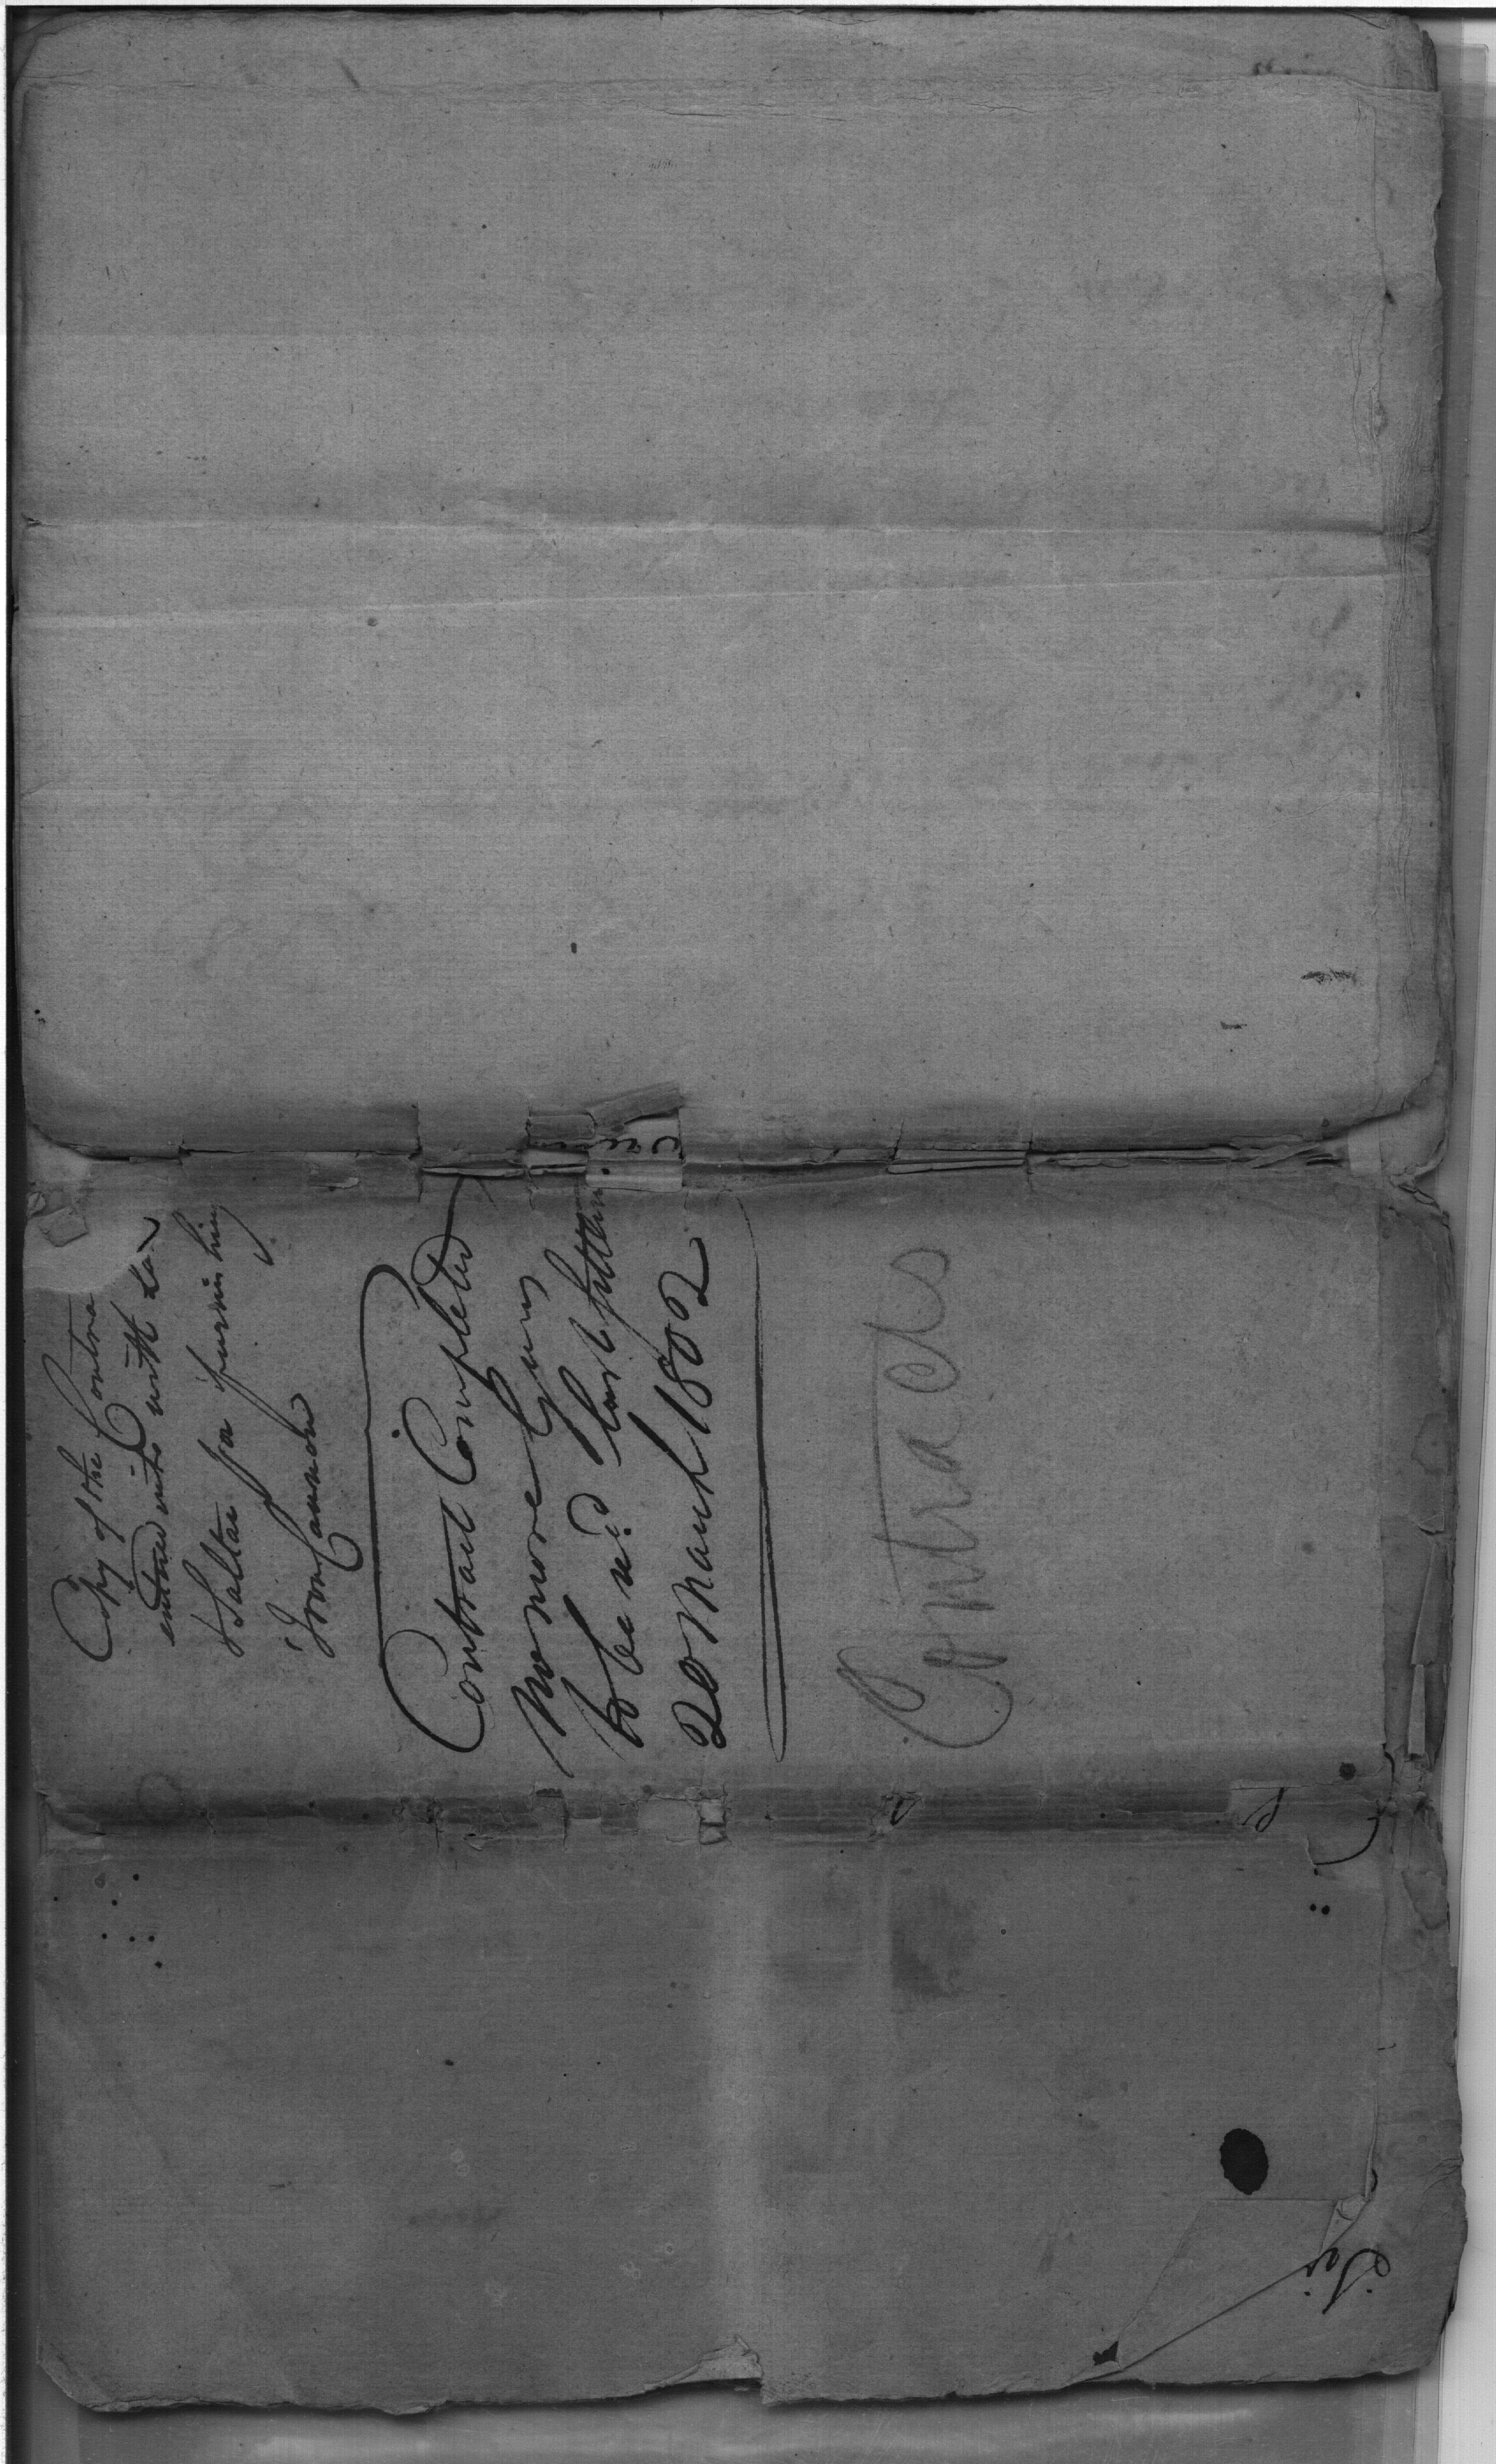 Copy of the Contra
entered into with La
& Salter for furnishing
Iron Cannon
Contract Completed
no more Guns
to be re.d
20 March 1802
Contracts